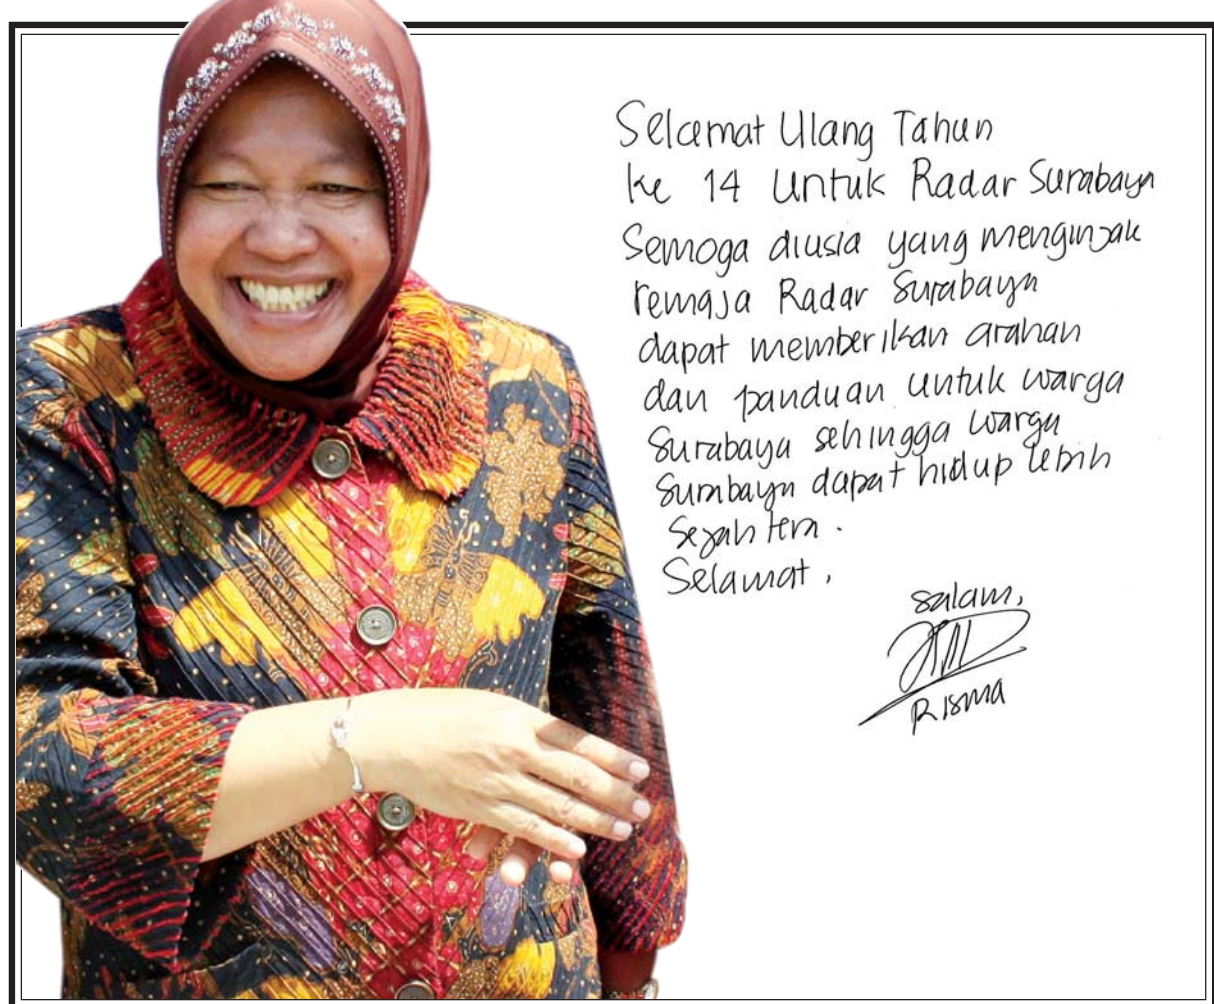 Selamat Ulang Tahun
ke 14 Untuk Radar Surabaya
Semoga diusia yang menginjak
remaja Radar Surabaya
dapat memberikan arahan
dan panduan untuk warga
Surabaya sehingga warga
Surabaya dapat hidup lebih
Sejahtera.
Selamat,
salam,
Risma